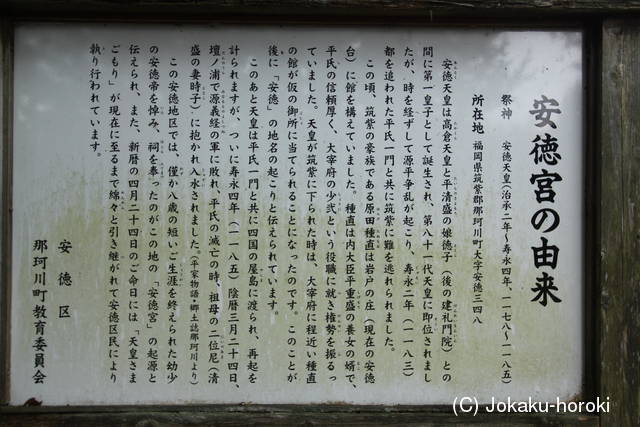 安徳宮の由来
祭神　安徳天皇（治承二年～寿永四年、一一七八～一一八五）
所在地　福岡県筑紫郡那珂川町大字安徳三四八
安徳天皇は高倉天皇と平清盛の娘徳子（後の建礼門院）との
間に第一皇子として誕生され、第八十一代天皇に即位されまし
たが、時を経ずして源平争乱が起こり、寿永二年（一一八三）
都を追われた平氏一門と共に筑紫に難を逃れられました。
この頃、筑紫の豪族である原田種直は岩戸の庄（現在の安徳
台）に館を構えていました。種直は内大臣平重盛の養女の婿で、
平氏の信頼厚く、大宰府の少弐という役職に就き権勢を振るっ
ていました。天皇が筑紫に下られた時は、大宰府に程近い種直
の館が仮の御所に当てられることになったのです。このことが
後に「安徳」の地名の起こりと伝えられています。
このあと天皇は平氏一門と共に四国の屋島に渡られ、再起を
計られますが、ついに寿永四年（一一八五）陰暦三月二十四日、
壇ノ浦で源義経の軍に敗れ、平氏の滅亡の時、祖母の二位尼（清
盛の妻時子）に抱かれ入水されました。（平家物語・郷土誌那珂川より）
この安徳地区では、僅か八歳の短いご生涯を終えられた幼少
の安徳帝を悼み、祠を奉ったのがこの地の「安徳宮」の起源と
伝えられ、また、新暦の四月二十四日のご命日には「天皇さま
ごもり」が現在に至るまで綿々と引き継がれて安徳区民により
執り行われています。
安徳区
那珂川町教育委員会
(C) Jokaku-horoki